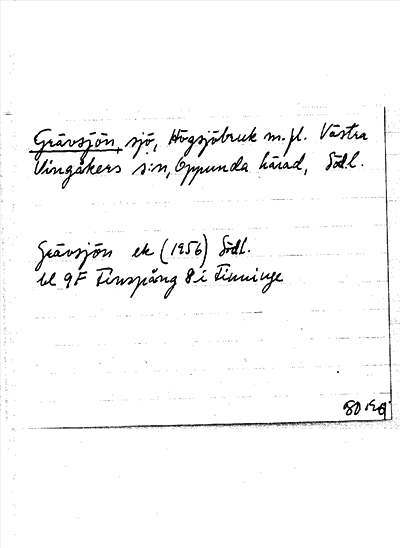 Grävsjön, sjö, Högsjöbruk m.fl. Västra
Vingåkers s:n, Oppunda härad, Södl.
Grävsjön ek (1956) Södl.
bl 9F Finspång 8i Finninge